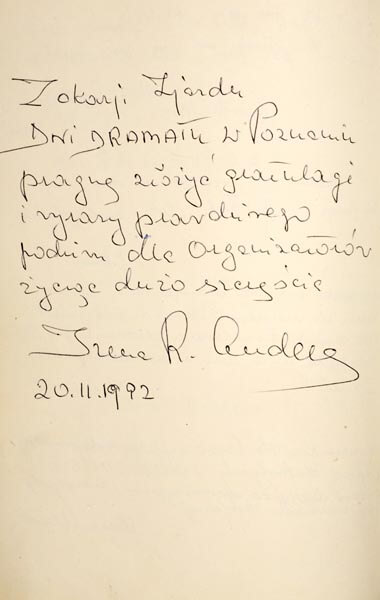 Z okazji Zjazdu
DNI DRAMATU W Poznaniu
pragnę złożyć gratulacje
i wyrazy prawdziwego
podziwu dla Organizatorów
życzę dużo szczęścia
Irena R. Anders
20.11.1992